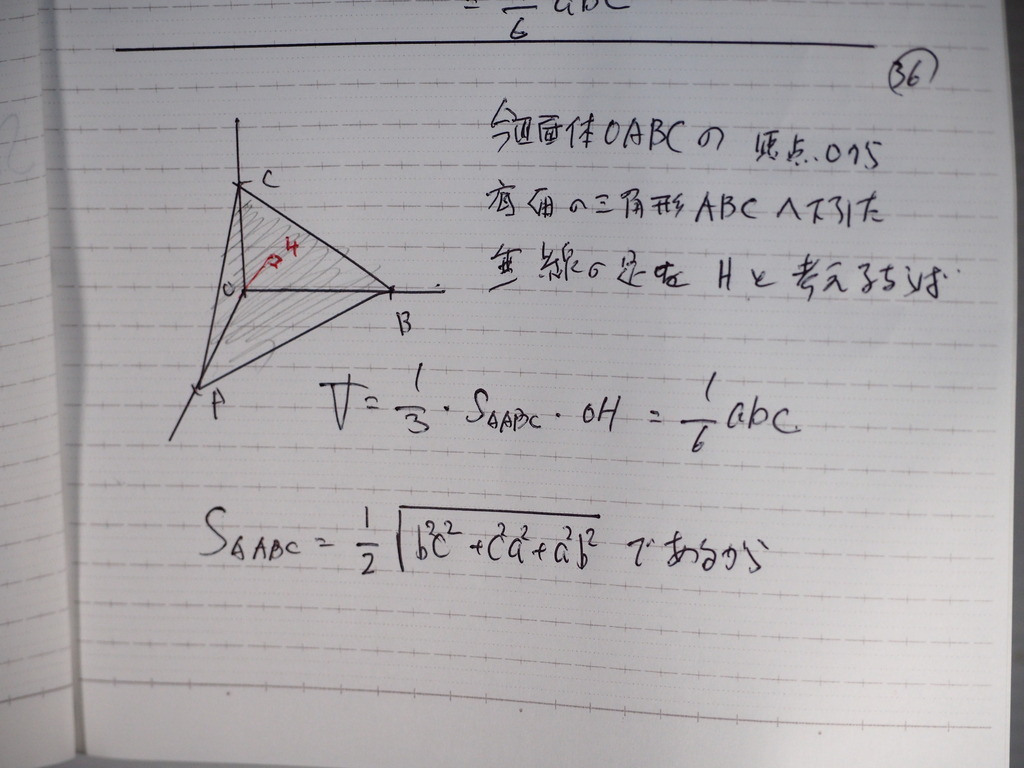 = 1/6 abc
36
今四面体OABCの頂点Oから
底面の三角形ABCへ下引た
垂線の足を Hと考えるちば
C
H
O
B
A
V = 1/3 · S△ABC · OH = 1/6 abc
S△ABC = 1/2 √(b²c² + c²a² + a²b²) であるから